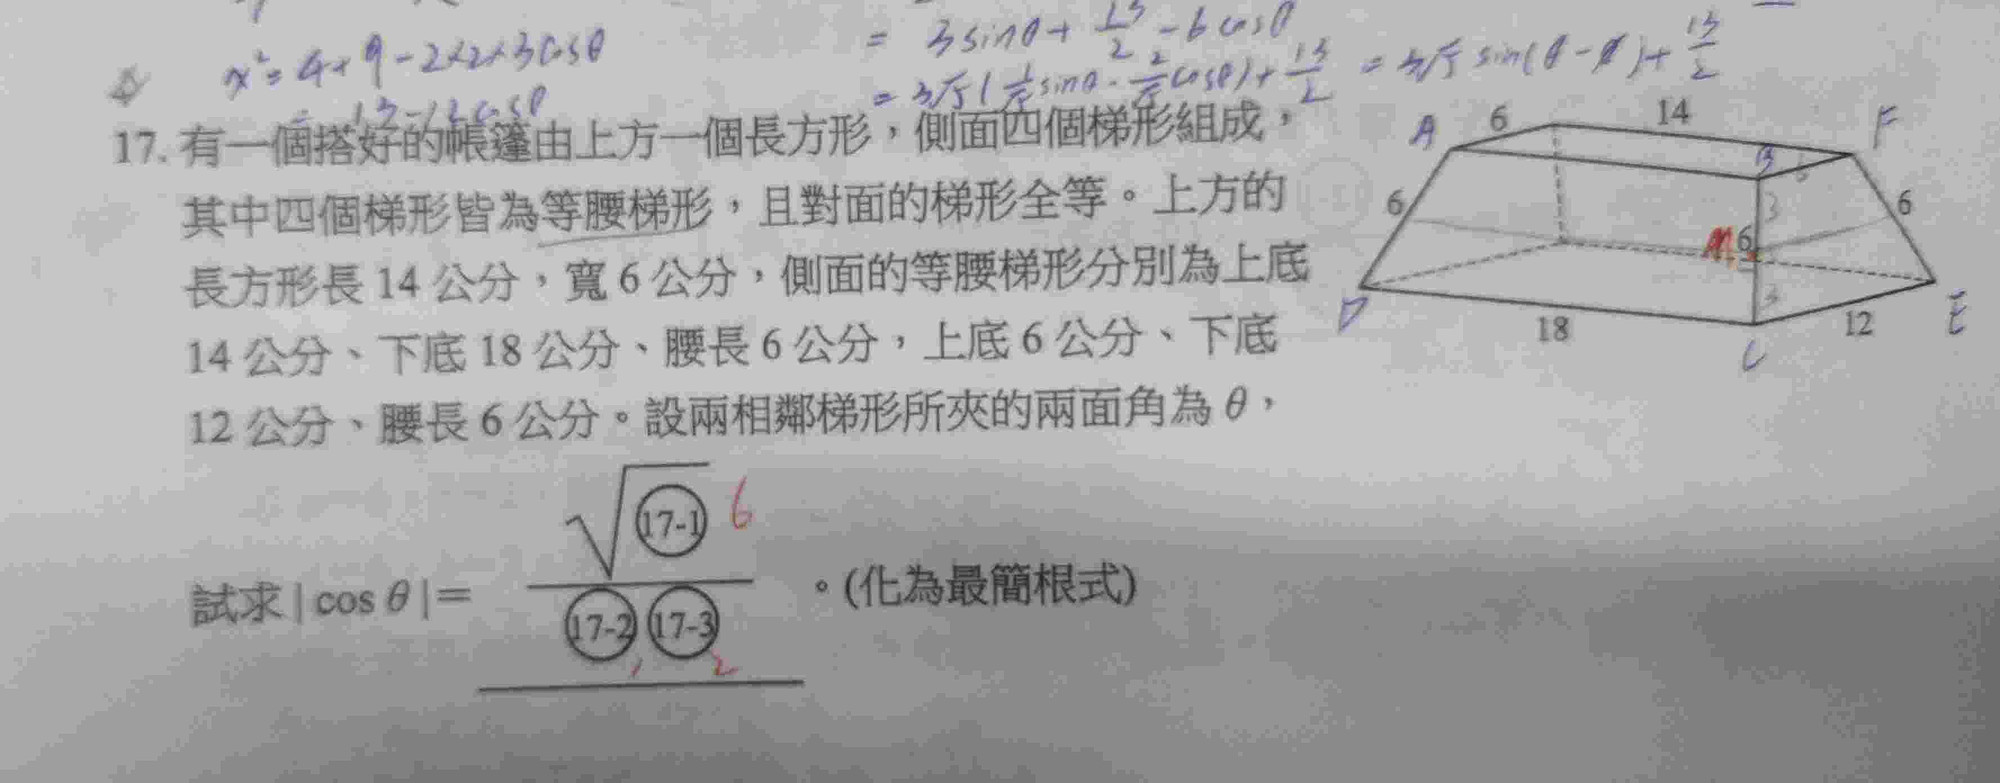 x² = 4+9-2×2×3cosθ
= 13-12cosθ
= 3sinθ + 13/2 - 6cosθ
= 3√5(1/√5 sinθ - 2/√5 cosθ) + 13/2 = 3√5 sin(θ-φ) + 13/2
17. 有一個搭好的帳篷由上方一個長方形,側面四個梯形組成,
其中四個梯形皆為等腰梯形,且對面的梯形全等。上方的
長方形長 14 公分,寬 6 公分,側面的等腰梯形分別為上底
14 公分、下底 18 公分、腰長 6 公分,上底 6 公分、下底
12 公分、腰長 6 公分。設兩相鄰梯形所夾的兩面角為 θ,
試求 | cos θ | = √(17-1) / (17-2)(17-3) 。(化為最簡根式)
6
1 2
A 6 14 F
B
6 3 6
M 6
3
D 18 12 E
C